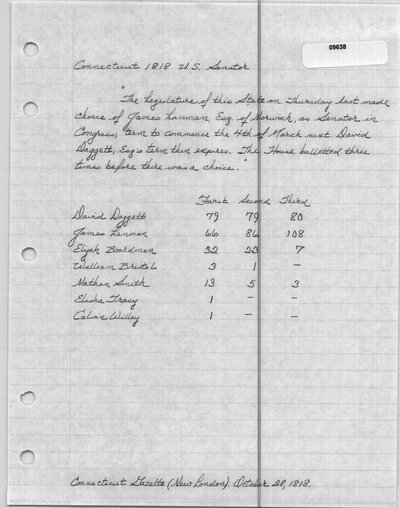 09638
Connecticut 1818 U.S. Senator
"The Legislature of this State on Thursday last made
choice of James Lanman, Esq. of Norwich, as Senator in
Congress; term to commence the 4th of March next. David
Daggett, Esq's term then expires. The House ballotted three
times before there was a choice."
First Second Third
David Daggett 79 79 80
James Lanman 66 86 108
Elijah Boardman 32 23 7
William Bristol 3 1 –
Nathan Smith 13 5 3
Elisha Tracy 1 – –
Calvin Willey 1 – –
Connecticut Gazette (New London). October 28, 1818.